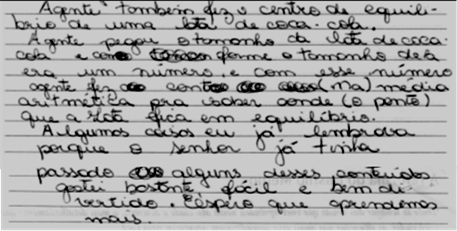 Agente também fez o centro de equilí-
brio de uma lata de coca-cola.
Agente pegou o tamanho da lata de coca
cola e conforme o tamanho dela
era um número, e com esse número
agente fez a conta (na) media
aritmética pra saber aonde (o ponto)
que a lata fica em equilíbrio.
Algumas coisas eu já lembrava
porque o senhor já tinha
passado alguns desses conteúdos
gostei bastante, fácil e bem di
vertido. Espero que aprendemos
mais.